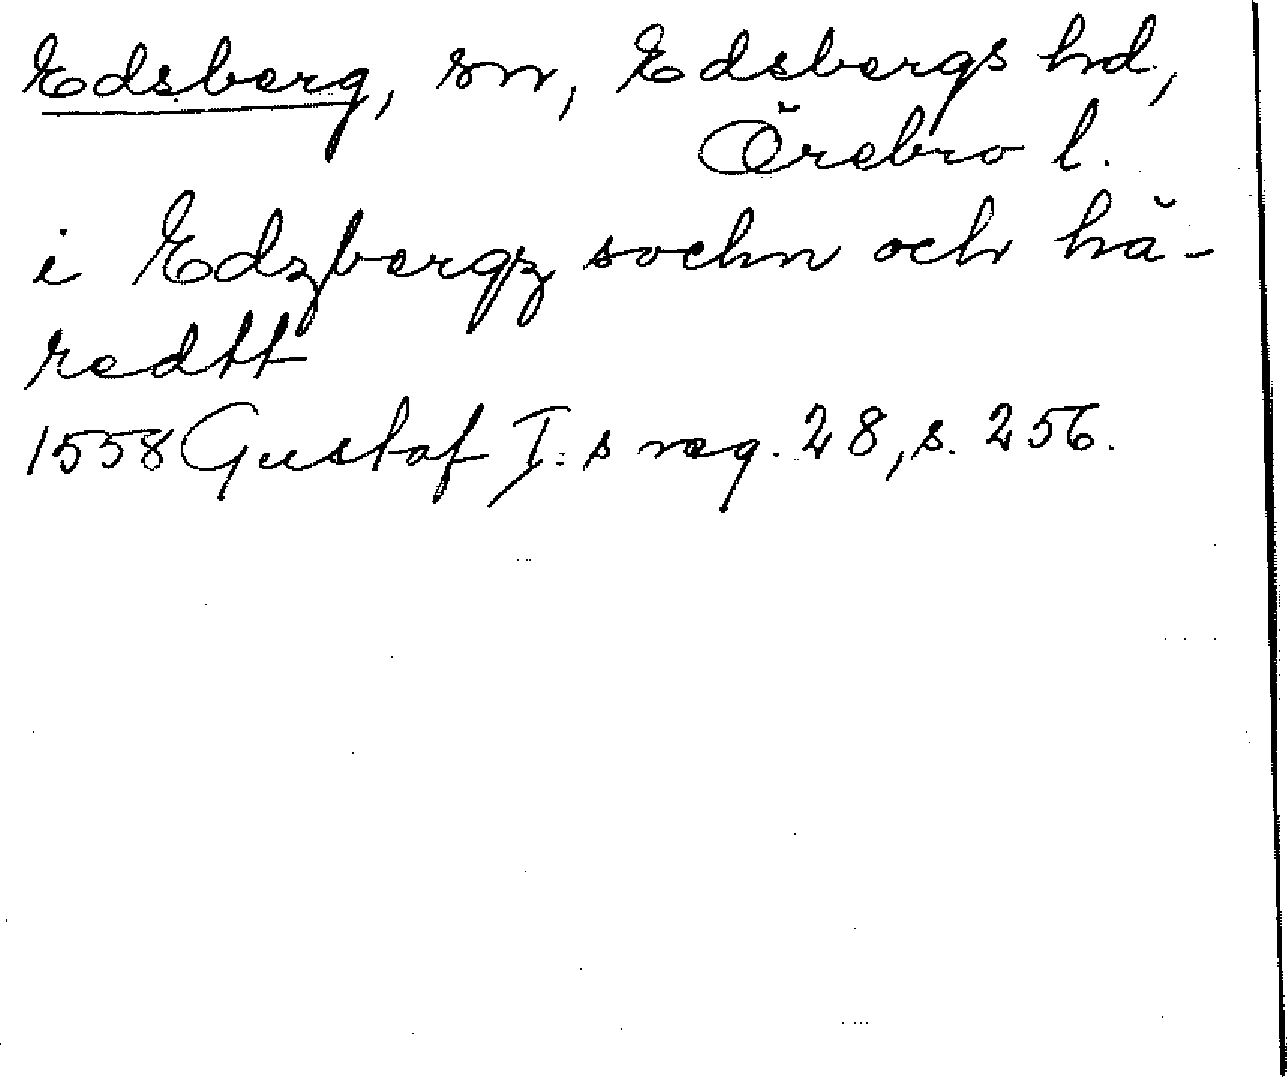 Edsberg, sn, Edsbergs hd,
Örebro l.
i Edzbergz sochn och hä-
redtt
1558 Gustaf I:s reg. 28, s. 256.